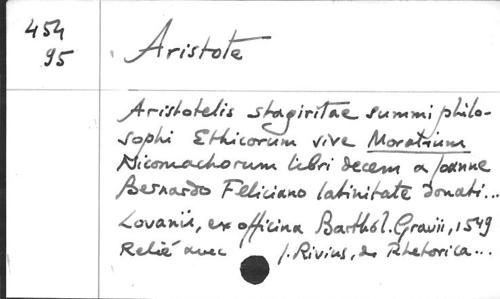 454
95
Aristote
Aristotelis stagiritae summi philo-
sophi Ethicorum sive Moralium
Nicomachorum libri decem a Joanne
Bernardo Feliciano latinitate donati...
Lovanii, ex officina Barthol. Gravii, 1549
Relié avec J. Rivius, de Rhetorica...